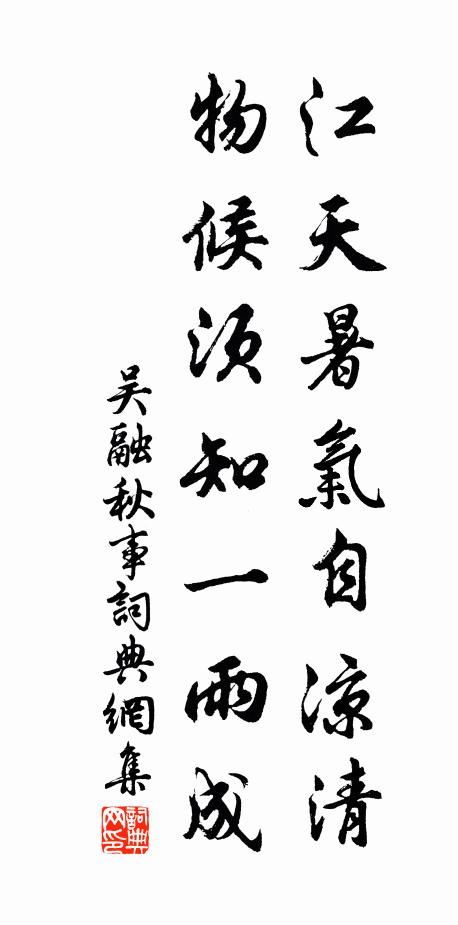 江天暑氣自凉清
物候須知一雨成
吴融秋事詞典網集
詞典网印